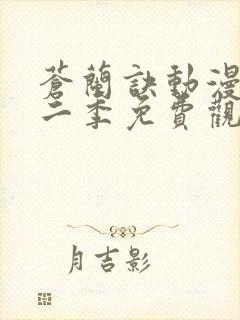 蒼蘭訣動漫
二季免費觀
月吉影